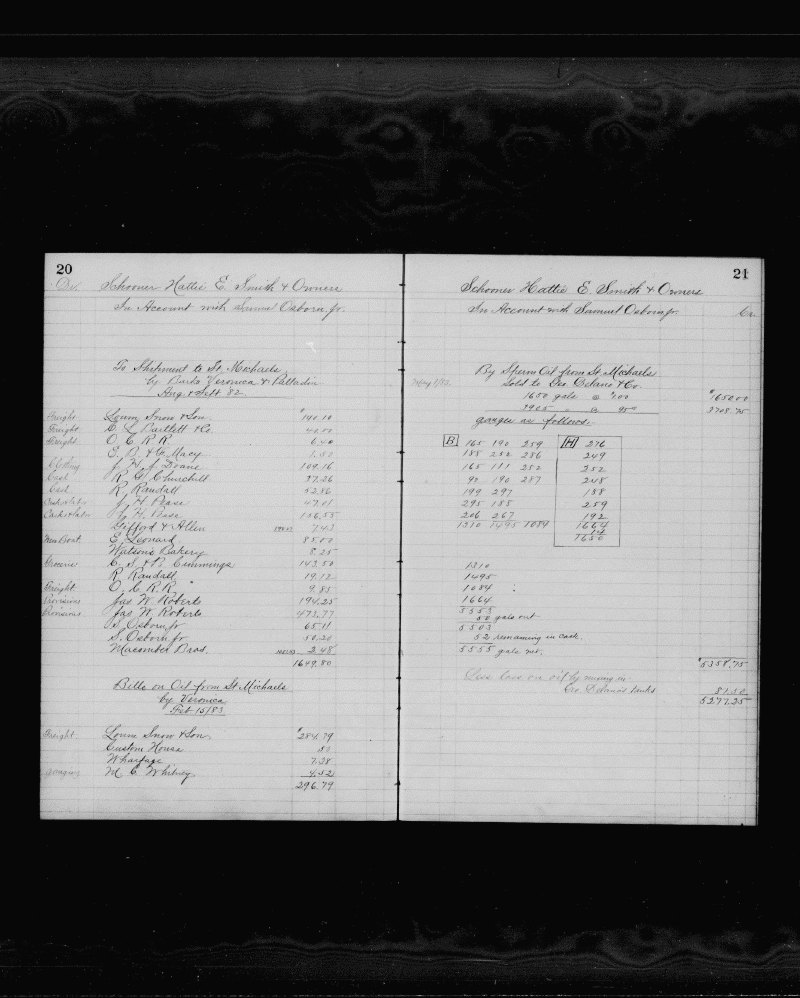 20
Dr. Schooner Hattie E. Smith & Owners
In Account with Samuel Osborn Jr.
To Shipment to St. Michaels
by Barks Veronica & Palladin
Aug. & Sept 82.
Freight Loum Snow & Son $140.10
Freight. E. L. Bartlett & Co. 40.00
Freight. O. C. R.R. 6.40
E. B. & F. Macy 1.50
Clothing J. H. J. Doane 109.16
Cash R. G. Churchill 77.26
Cash R. Randall 52.86
J. H. Pease 47.01
J. H. Pease 156.55
Gifford & Allen 7.43
New Boat. E. Leonard 85.00
Watsons Bakery 8.25
C. S. & B. Cummings 143.50
R. Randall 19.12
Freight. O. C. R.R. 9.85
Provisions Jas W. Roberts 194.25
Provisions Jas W. Roberts 473.77
S. Osborn Jr 65.11
S. Osborn Jr 50.20
Macomber Bros. 2.48
1649.80
Bills on Oil from St Michaels
by Veronica
Feb 15/83
Freight. Loum Snow & Son $284.39
Custom House .50
Wharfage 7.38
Gauging M. C. Whitney 4.52
296.79
21
Schooner Hattie E. Smith & Owners
In Account with Samuel Osborn Jr. Cr.
By Sperm Oil from St. Michaels
Sold to Geo. Delano & Co.
1650 gals @ $1.00 $1650.00
3905 " @ 95c 3708.75
gauges as follows.
B 165 190 259 H 276
188 252 286 249
165 111 252 252
92 190 287 248
199 297 188
295 188 259
206 267 192
1310 1495 1084 1664
14
1650
1310
1495
1084
1664
5553
50 gals out
5503
52 remaining in cask.
5555 gals net. $5358.75
Less loss on oil by running in
Geo Delano's tanks 81.50
5277.25